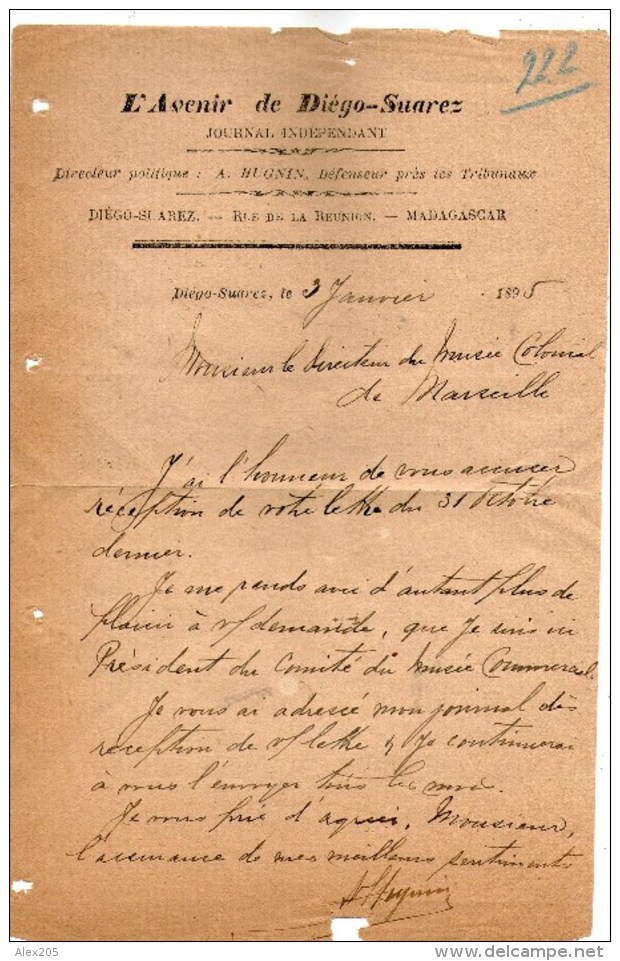 222
L'Avenir de Diégo-Suarez
JOURNAL INDÉPENDANT
Directeur politique : A. HUGNIN, Défenseur près les Tribunaux
DIÉGO-SUAREZ. — RUE DE LA RÉUNION. — MADAGASCAR
Diégo-Suarez, le 3 Janvier 1895
Monsieur le Directeur du Musée Colonial
de Marseille
J'ai l'honneur de vous accuser
réception de votre lettre du 31 Octobre
dernier.
Je me rends avec d'autant plus de
plaisir à v/ demande, que je suis ici
Président du Comité du Musée Commercial.
Je vous ai adressé mon journal dès
réception de v/ lettre & je continuerai
à vous l'envoyer tous les mois.
Je vous prie d'agréer, Monsieur,
l'assurance de mes meilleurs sentiments
A Hugnin
Alex205
www.delcampe.net